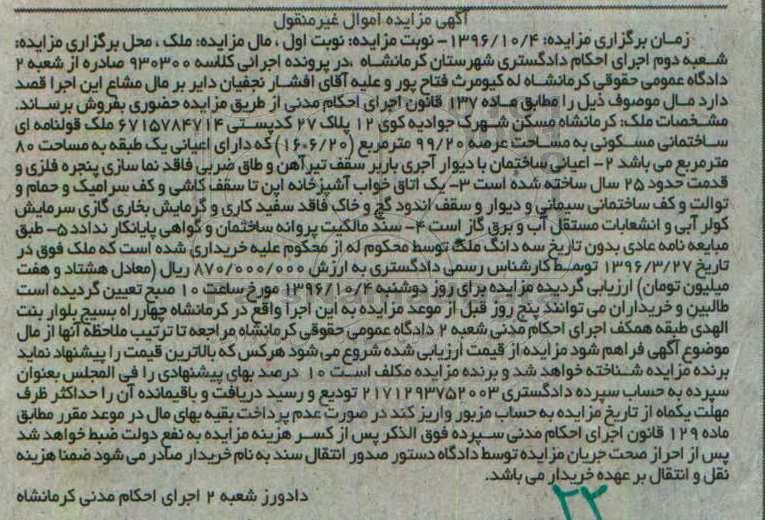 آگهی مزایده اموال غیرمنقول
زمان برگزاری مزایده: ۱۳۹۶/۱۰/۴- نوبت مزایده: نوبت اول ، مال مزایده: ملک ، محل برگزاری مزایده:
شعبه دوم اجرای احکام دادگستری شهرستان کرمانشاه ،در پرونده اجرائی کلاسه ۹۳۰۳۰۰ صادره از شعبه ۲
دادگاه عمومی حقوقی کرمانشاه له کیومرث فتاح پور و علیه آقای افشار نجفیان دایر بر مال مشاع این اجرا قصد
دارد مال موصوف ذیل را مطابق ماده ۱۳۷ قانون اجرای احکام مدنی از طریق مزایده حضوری بفروش برساند.
مشخصات ملک: کرمانشاه مسکن شهرک جوادیه کوی ۱۲ پلاک ۲۷ کدپستی ۶۷۱۵۷۸۴۷۱۴ ملک قولنامه ای
ساختمانی مسکونی به مساحت عرصه ۹۹/۲۰ مترمربع (۱۶۰۶/۲۰) که دارای اعیانی یک طبقه به مساحت ۸۰
مترمربع می باشد ۲- اعیانی ساختمان با دیوار آجری باربر سقف تیرآهن و طاق ضربی فاقد نما سازی پنجره فلزی و
قدمت حدود ۲۵ سال ساخته شده است ۳- یک اتاق خواب آشپزخانه اپن تا سقف کاشی و کف سرامیک و حمام و
توالت و کف ساختمانی سیمانی و دیوار و سقف اندود گچ و خاک فاقد سفید کاری و گرمایش بخاری گازی سرمایش
کولر آبی و انشعابات مستقل آب و برق گاز است ۴- سند مالکیت پروانه ساختمان و گواهی پایانکار ندادد ۵- طبق
مبایعه نامه عادی بدون تاریخ سه دانگ ملک توسط محکوم له از محکوم علیه خریداری شده است که ملک فوق در
تاریخ ۱۳۹۶/۳/۲۷ توسط کارشناس رسمی دادگستری به ارزش ۸۷۰/۰۰۰/۰۰۰ ریال (معادل هشتاد و هفت
میلیون تومان) ارزیابی گردیده مزایده برای روز دوشنبه ۱۳۹۶/۱۰/۴ مورخ ساعت ۱۰ صبح تعیین گردیده است
طالبین و خریداران می توانند پنج روز قبل از موعد مزایده به این اجرا واقع در کرمانشاه چهارراه بسیج بلوار بنت
الهدی طبقه همکف اجرای احکام مدنی شعبه ۲ دادگاه عمومی حقوقی کرمانشاه مراجعه تا ترتیب ملاحظه آنها از مال
موضوع آگهی فراهم شود مزایده از قیمت ارزیابی شده شروع می شود هرکس که بالاترین قیمت را پیشنهاد نماید
برنده مزایده شناخته خواهد شد و برنده مزایده مکلف است ۱۰ درصد بهای پیشنهادی را فی المجلس بعنوان
سپرده به حساب سپرده دادگستری ۲۱۷۱۲۹۳۷۵۲۰۰۳ تودیع و رسید دریافت و باقیمانده آن را حداکثر ظرف
مهلت یکماه از تاریخ مزایده به حساب مزبور واریز کند در صورت عدم پرداخت بقیه بهای مال در موعد مقرر مطابق
ماده ۱۲۹ قانون اجرای احکام مدنی سپرده فوق الذکر پس از کسر هزینه مزایده به نفع دولت ضبط خواهد شد
پس از احراز صحت جریان مزایده توسط دادگاه دستور صدور انتقال سند به نام خریدار صادر می شود ضمنا هزینه
نقل و انتقال بر عهده خریدار می باشد.
دادورز شعبه ۲ اجرای احکام مدنی کرمانشاه
۲۲